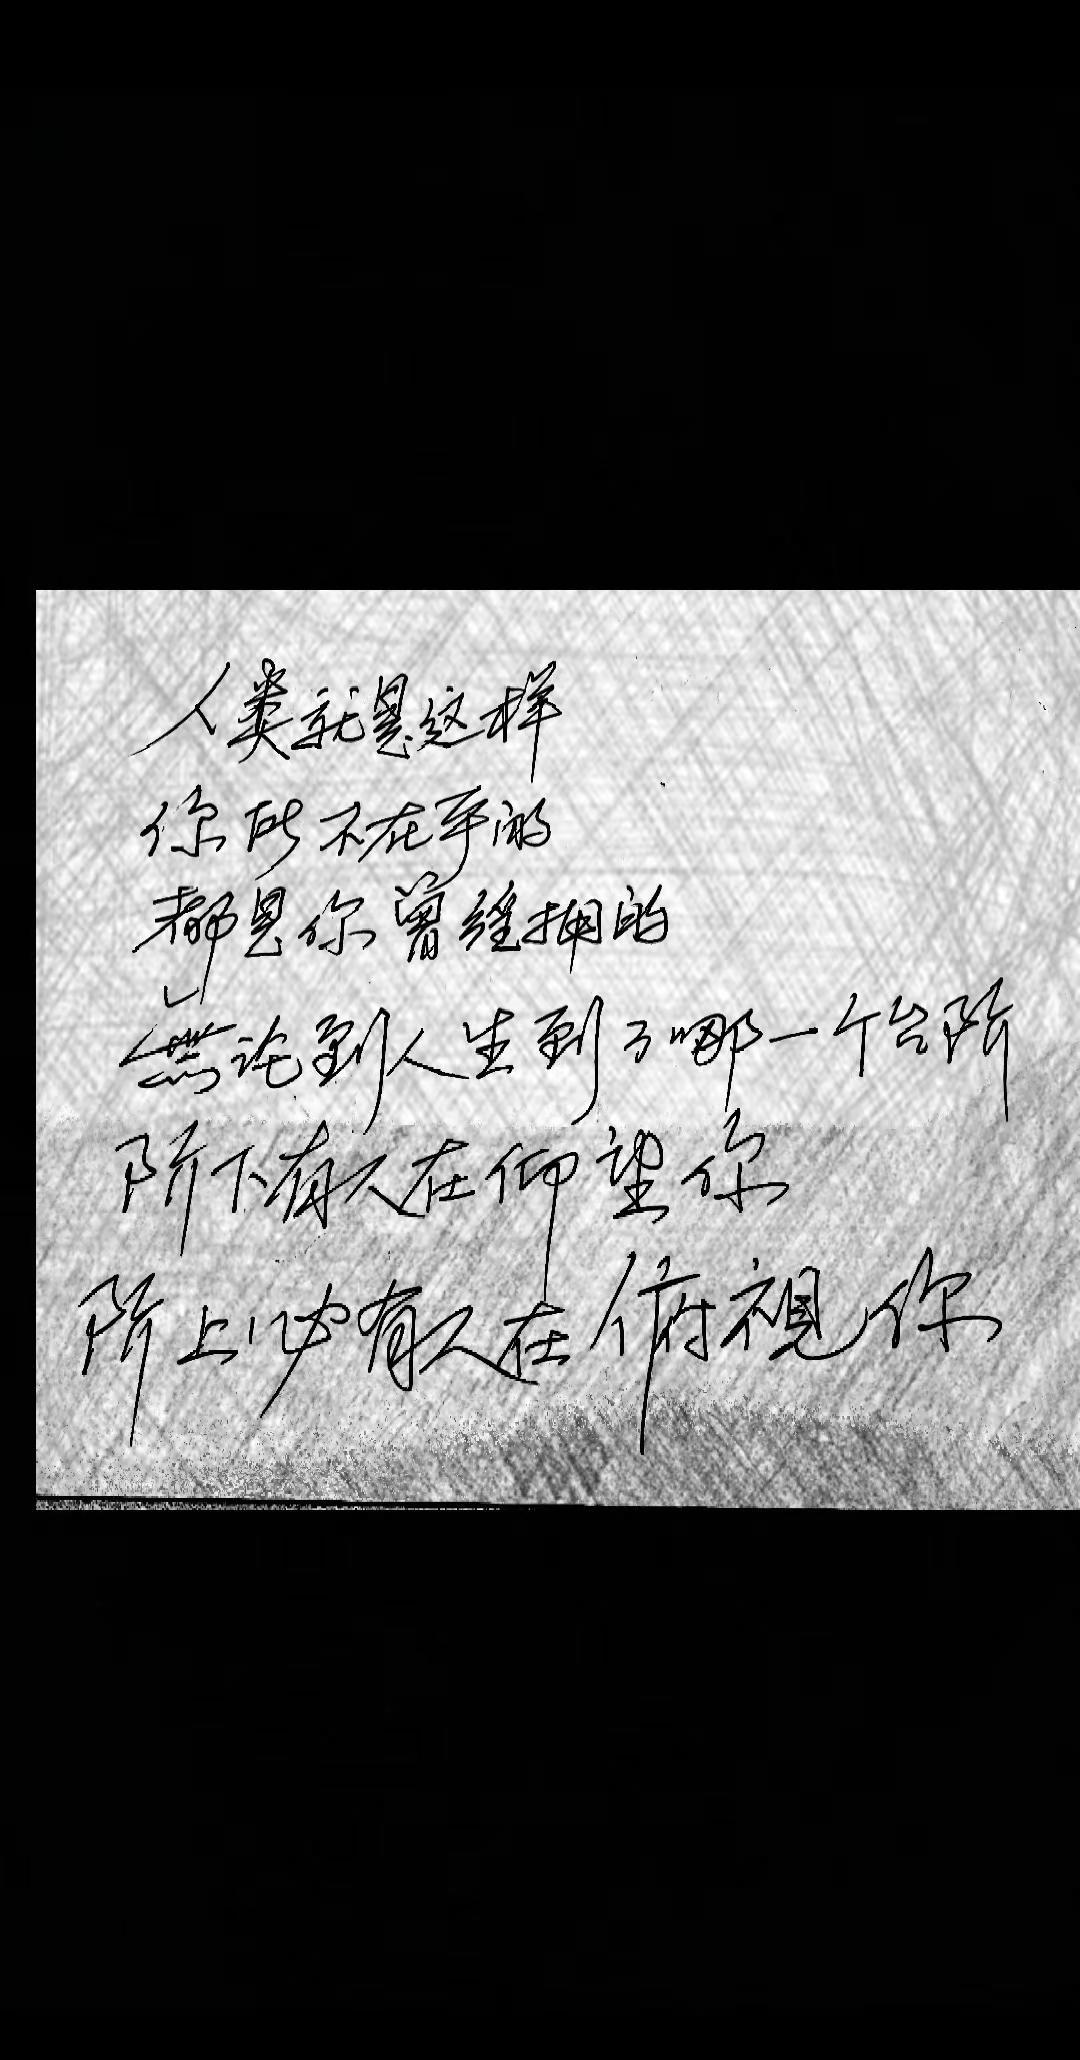 人类就是这样
你所不在乎的
都是你曾经拥的
無论到人生到了哪一个台阶
阶下有人在仰望你
阶上必有人在俯视你